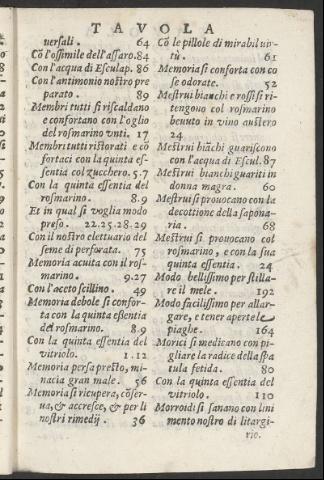 TAVOLA
uersali. 64
Cõ l'ossimile dell'assaro. 84
Con l'acqua di Esculap. 86
Con l'antimonio nostro pre
parato. 89
Membri tutti si riscaldano
e confortano con l'oglio
del rosmarino vnti. 17
Membri tutti ristorati e cõ
fortaci con la quinta es-
sentia col zucchero. 5.7
Con la quinta essentia del
rosmarino. 8.9
Et in qual si voglia modo
preso. 22.25.28.29
Con il nostro elettuario del
seme di perforata. 75
Memoria acuita con il ros-
marino. 9.27
Con l'aceto scillino. 49
Memoria debole si confor-
ta con la quinta eßentia
del rosmarino. 8.9
Con la quinta essentia del
vitriolo. 1.12
Memoria persa presto, mi-
nacia gran male. 56
Memoria si ricupera, cõser-
ua, & accresce, & per li
nostri rimedij. 36
Cõ le pillole di mirabil uir-
tù. 61
Memoria si conforta con co
se odorate. 52
Mestrui bianchi e rossi si ri-
tengono col rosmarino
beuuto in vino austero
24
Mestrui biãchi guariscono
con l'acqua di Escul. 87
Mestrui bianchi guariti in
donna magra. 60
Mestrui si prouocano con la
decottione della sapona-
ria. 68
Mestrui si prouocano col
rosmarino, e con la sua
quinta essentia. 24
Modo bellissimo per stilla-
re il mele. 192
Modo facilissimo per allar-
gare, e tener aperte le
piaghe. 164
Morici si medicano con pi-
gliare la radice della spa
tula fetida. 80
Con la quinta essentia del
vitriolo. 110
Morroidi si sanano con lini
mento nostro di litargi-
rio.